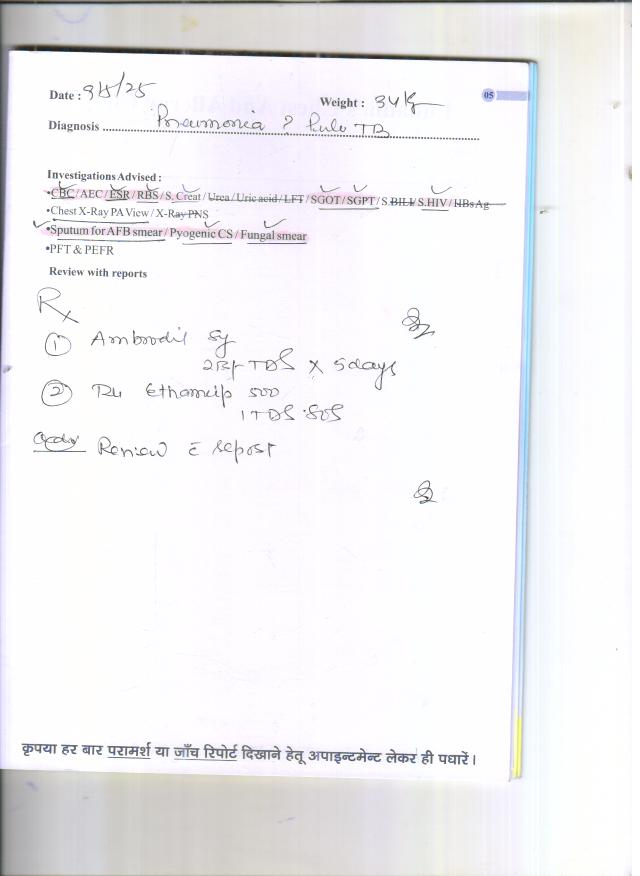 05
Date : 9/5/25 Weight : 34 kg
Diagnosis Pneumonia ? Pulm TB
Investigations Advised :
•CBC / AEC / ESR / RBS / S. Creat / Urea / Uric acid / LFT / SGOT / SGPT / S.BILI / S.HIV / HBs Ag
•Chest X-Ray PA View / X-Ray PNS
•Sputum for AFB smear / Pyogenic CS / Fungal smear
•PFT & PEFR
Review with reports
Rx
① Ambrodil Sy
TDS x 5 days
② Ethamcip 500
1 TDS SOS
Review c̄ report
कृपया हर बार परामर्श या जाँच रिपोर्ट दिखाने हेतू अपाइन्टमेन्ट लेकर ही पधारें।